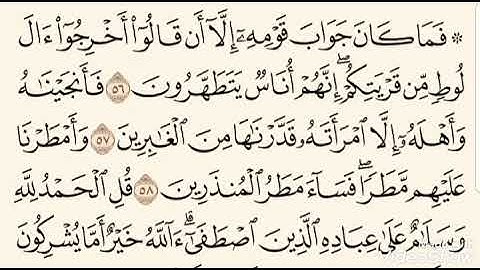 ۞ فَمَا كَانَ جَوَابَ قَوْمِهِۦٓ إِلَّآ أَن قَالُوٓا۟ أَخْرِجُوٓا۟ ءَالَ
لُوطٍ مِّن قَرْيَتِكُمْ ۖ إِنَّهُمْ أُنَاسٌ يَتَطَهَّرُونَ ٥٦ فَأَنجَيْنَٰهُ
وَأَهْلَهُۥٓ إِلَّا ٱمْرَأَتَهُۥ قَدَّرْنَٰهَا مِنَ ٱلْغَٰبِرِينَ ٥٧ وَأَمْطَرْنَا
عَلَيْهِم مَّطَرًا ۖ فَسَآءَ مَطَرُ ٱلْمُنذَرِينَ ٥٨ قُلِ ٱلْحَمْدُ لِلَّهِ
وَسَلَٰمٌ عَلَىٰ عِبَادِهِ ٱلَّذِينَ ٱصْطَفَىٰٓ ۗ ءَآللَّهُ خَيْرٌ أَمَّا يُشْرِكُونَ